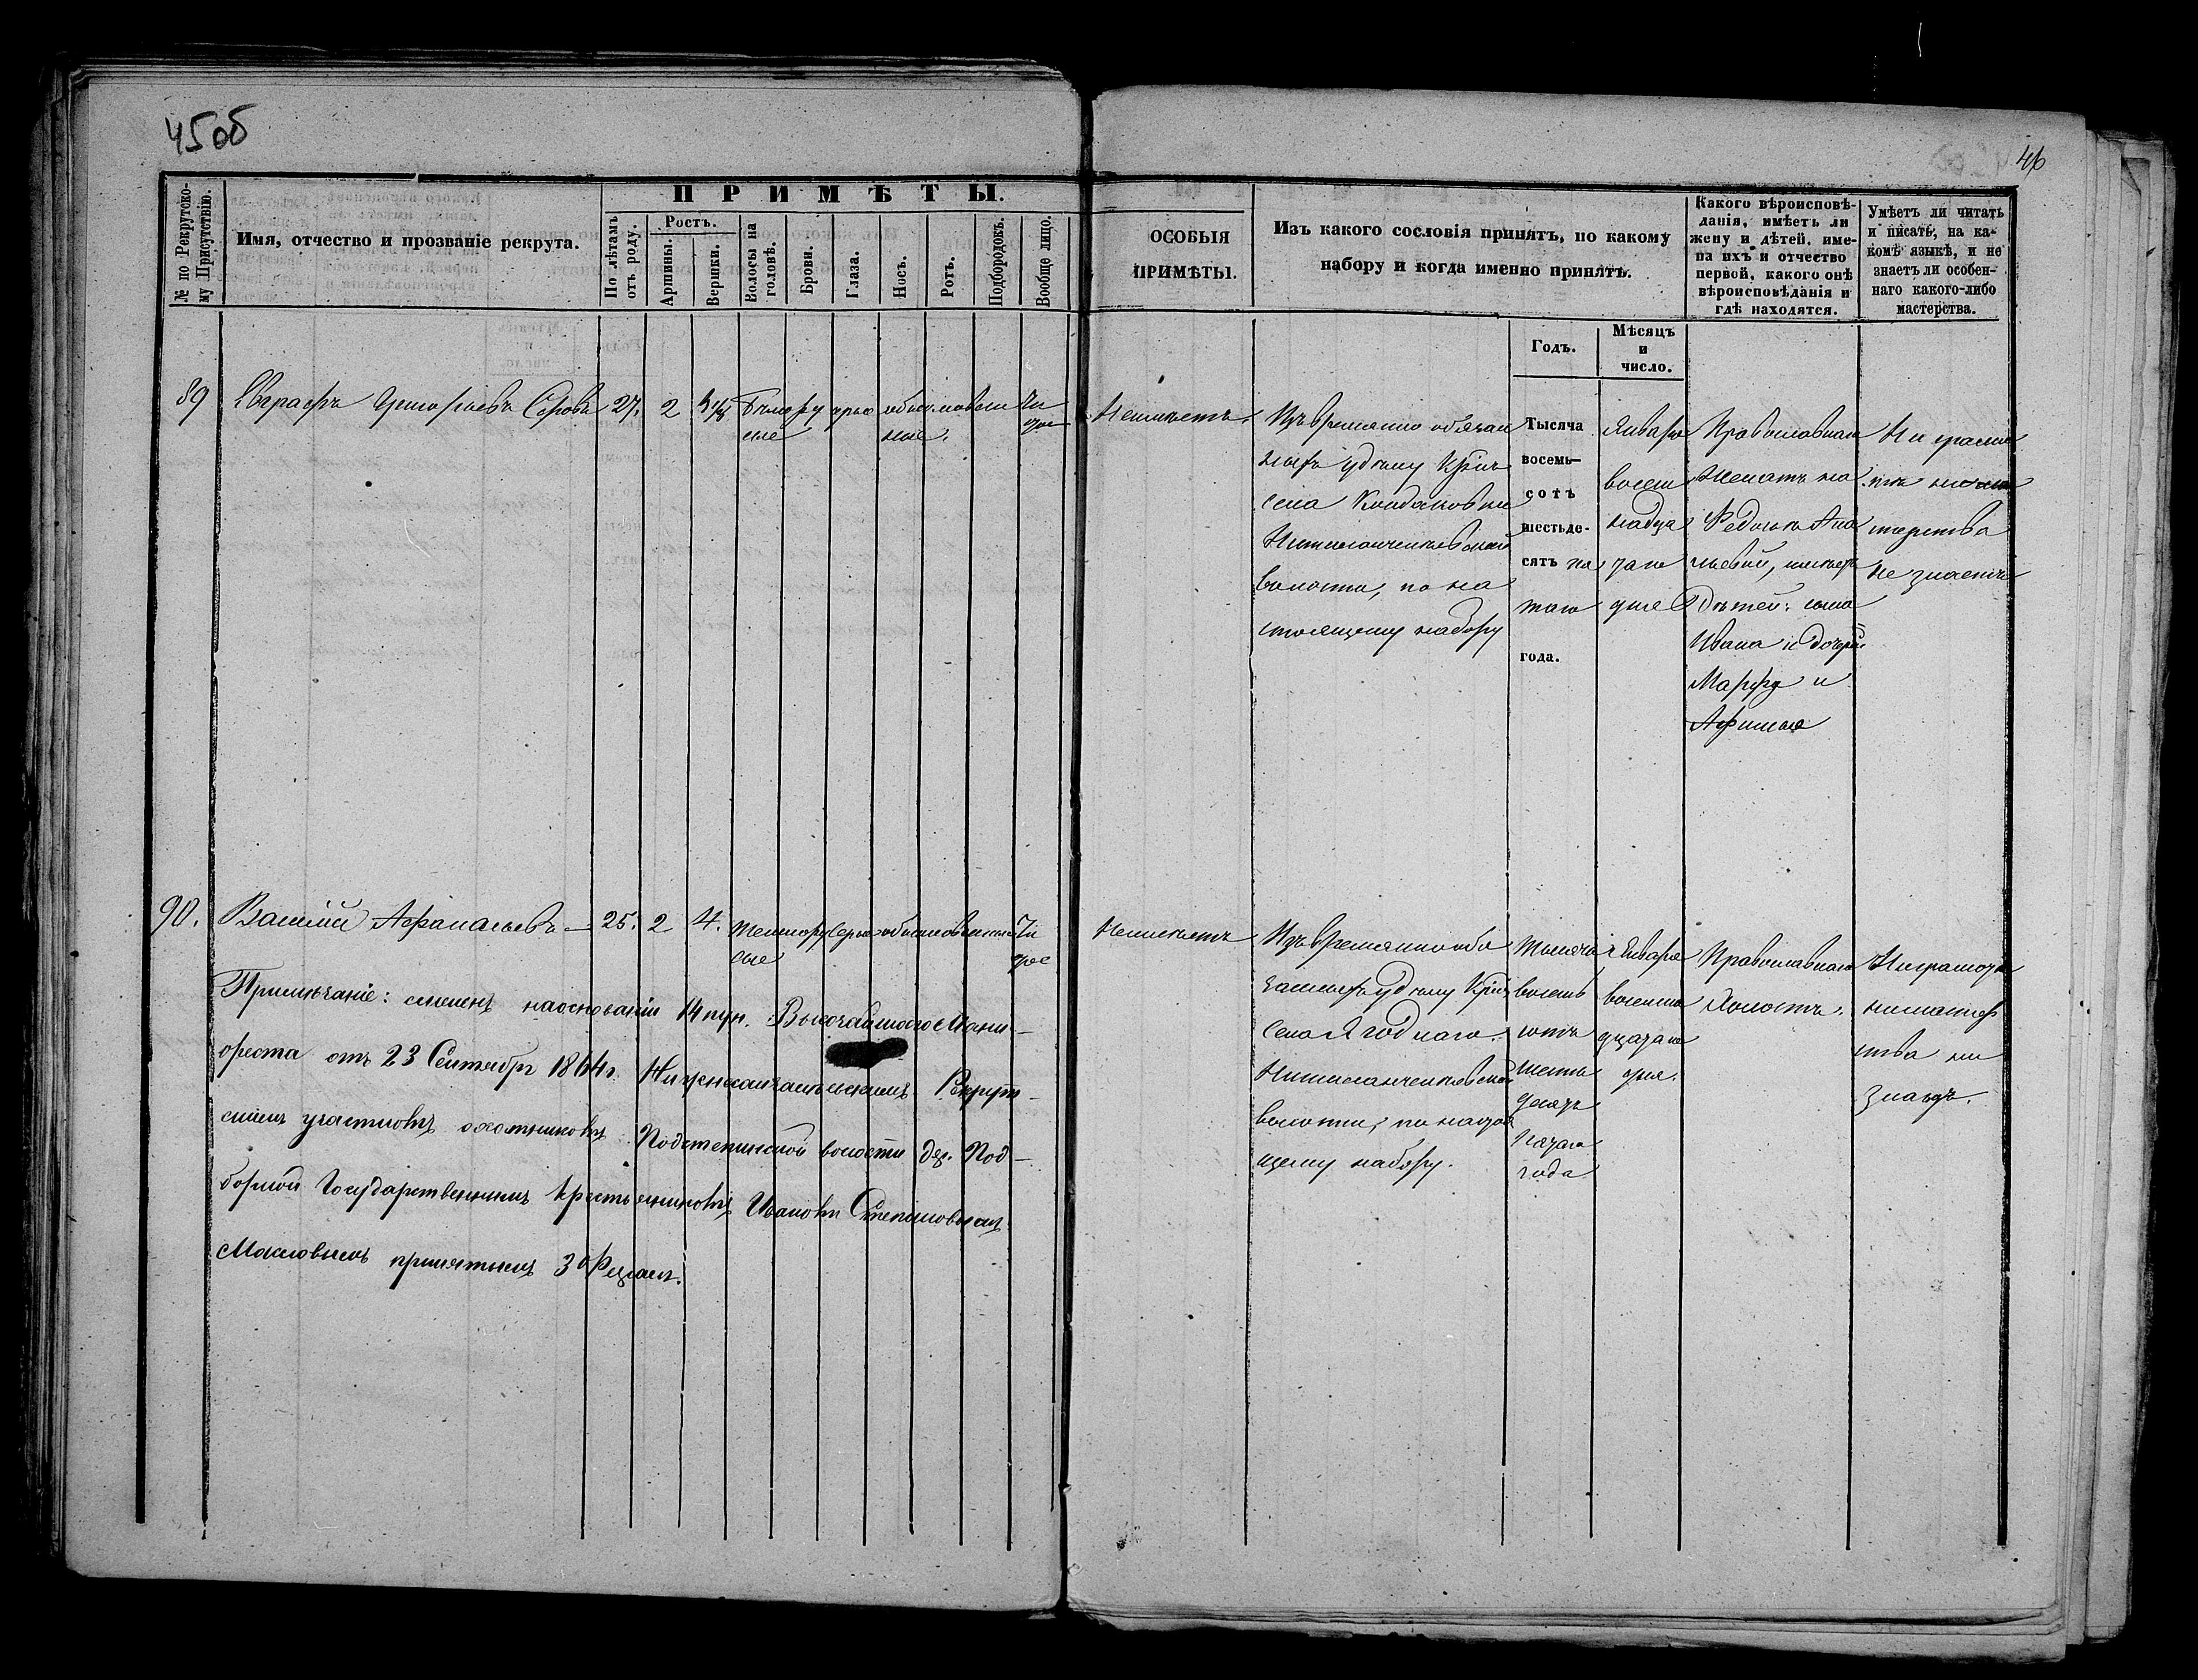 45об
46
ПРИМѢТЫ.
№ по Рекрутско-
му Присутствію.
Имя, отчество и прозваніе рекрута.
По лѣтамъ
отъ роду.
Ростъ.
Аршины.
Вершки.
Волосы на
головѣ.
Брови.
Глаза.
Носъ.
Ротъ.
Подбородокъ.
Вообще лицо.
ОСОБЫЯ
ПРИМѢТЫ.
Изъ какого сословія принятъ, по какому
набору и когда именно принятъ.
Годъ.
Мѣсяцъ
и
число.
Какого вѣроисповѣ-
данія, имѣетъ ли
жену и дѣтей, име-
на ихъ и отчество
первой, какого онѣ
вѣроисповѣданія и
гдѣ находятся.
Умѣетъ ли читать
и писать, на ка-
комъ языкѣ, и не
знаетъ ли особен-
наго какого-либо
мастерства.
89
27.
2
обыкновен
ные.
Чи
стое
Неимѣетъ.
Изъ временно обязан
ныхъ
села Кондаковки
волости, по на
стоящему набору
Тысяча
восемь-
сотъ
шестьде-
сятъ пя
таго
года.
Января
восем
надца
таго
дня
Православнаго
Женатъ на
Федосьѣ
имѣетъ
Дѣтей: сына
Ивана и дочерей
Марфу и
Афимью
Ни грамо
терства
не знаетъ
90.
Василій Афанасьевъ —
25.
2
4.
темнору
сые
обыкновенные
Чи
стое
Неимѣетъ
Изъ временнообя
села Ягоднаго
волости, по настоя
щему набору.
Тысяча
восемь
сотъ
шесть
десятъ
пятаго
года
Января
восемна
дцатаго
дня.
Православнаго
Холостъ.
Неграмотн
ни мастер
ства не
знаетъ.
Примѣчаніе: смѣненъ на основаніи 14 пун. Высочайшаго Мани-
феста отъ 23 Сентября 1864 г. Рекрут-
скимъ участковъ охотникомъ Подстепинской волости дер. Под-
борной Государственнымъ крестьяниномъ Иваномъ Степановымъ
Масловымъ принятымъ